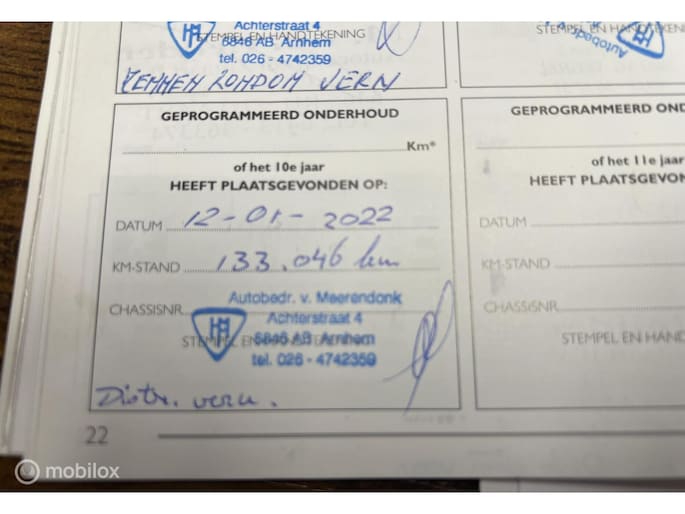 Achterstraat 4
STEMPEL EN HANDTEKENING
6846 AB Arnhem
tel. 026 - 4742359
REMMEN RONDOM VERN
STEMPEL EN HANDTEKEN
Autobedr
GEPROGRAMMEERD ONDERHOUD
Km*
of het 10e jaar
HEEFT PLAATSGEVONDEN OP:
DATUM 12-01-2022
KM-STAND 133.046 km
CHASSISNR.
Autobedr. v. Meerendonk
Achterstraat 4
STEMPEL EN HANDTEKENING
6846 AB Arnhem
tel. 026 - 4742359
Distr. vern.
22
GEPROGRAMMEERD OND
of het 11e jaar
HEEFT PLAATSGEVON
DATUM
KM-STAND
CHASSISNR.
STEMPEL EN HAND
mobilox